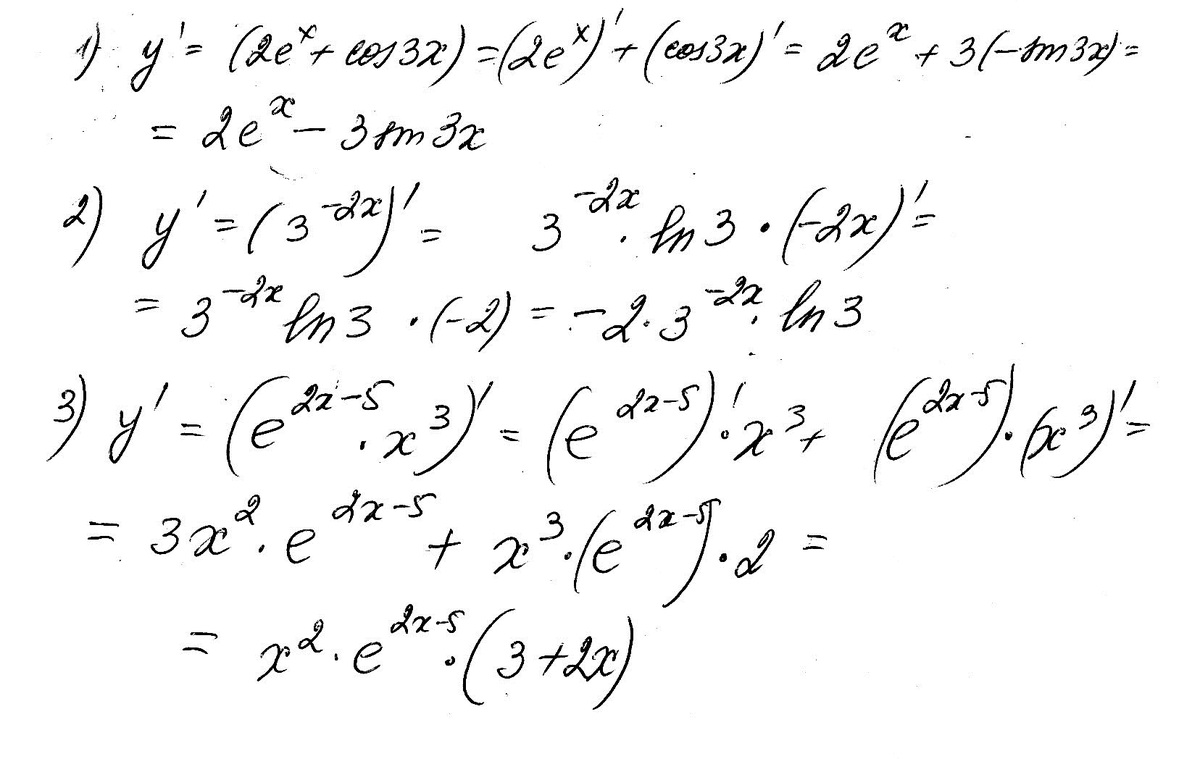 1) y' = (2e^x + cos3x) = (2e^x)' + (cos3x)' = 2e^x + 3(-sin3x) =
= 2e^x - 3sin3x
2) y' = (3^{-2x})' = 3^{-2x} · ln3 · (-2x)' =
= 3^{-2x} ln3 · (-2) = -2 · 3^{-2x} · ln3
3) y' = (e^{2x-5} · x^3)' = (e^{2x-5})' · x^3 + (e^{2x-5}) · (x^3)' =
= 3x^2 · e^{2x-5} + x^3 · (e^{2x-5}) · 2 =
= x^2 · e^{2x-5} · (3+2x)